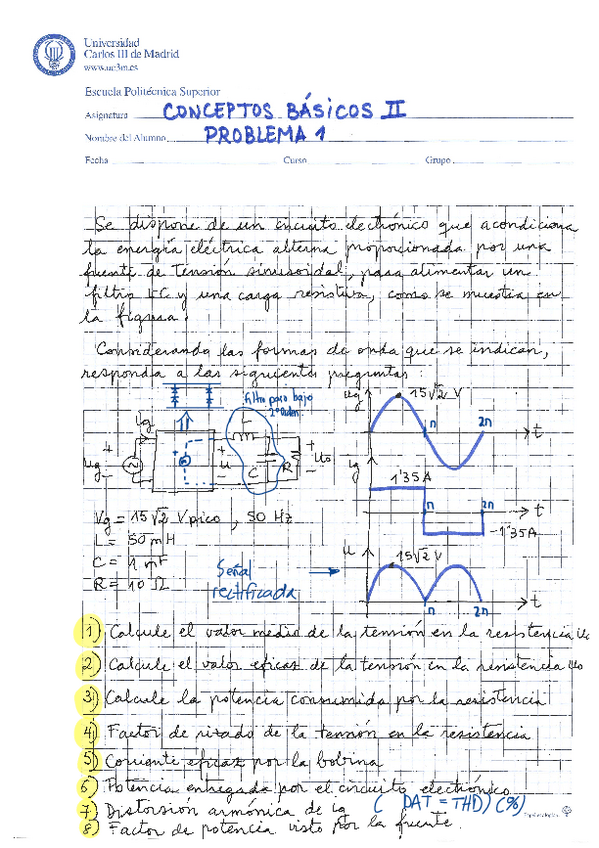 Universidad
Carlos III de Madrid
www.uc3m.es
Escuela Politécnica Superior
Asignatura CONCEPTOS BÁSICOS II
Nombre del Alumno PROBLEMA 1
Fecha Curso Grupo
Se dispone de un circuito electrónico que acondiciona
la energía eléctrica alterna proporcionada por una
fuente de tensión sinusoidal, para alimentar un
filtro LC y una carga resistiva, como se muestra en
la figura.
Considerando las formas de onda que se indican,
responda a las siguientes preguntas:
filtro paso bajo
2º orden
ug 15√2 V
π 2π t
ig
L
ig
+ ug -
+ u -
C R
+ uo -
1'35 A
π 2π t
-1'35A
Vg = 15√2 V pico, 50 Hz
L = 50 mH
C = 1 mF
R = 10 Ω
Señal
rectificada
u 15√2 V
π 2π t
1) Calcule el valor medio de la tensión en la resistencia uo
2) Calcule el valor eficaz de la tensión en la resistencia uo
3) Calcule la potencia consumida por la resistencia
4) Factor de rizado de la tensión en la resistencia
5) Corriente eficaz por la bobina
6) Potencia entregada por el circuito electrónico
7) Distorsión armónica de ig (DAT = THD) (%)
8) Factor de potencia visto por la fuente.